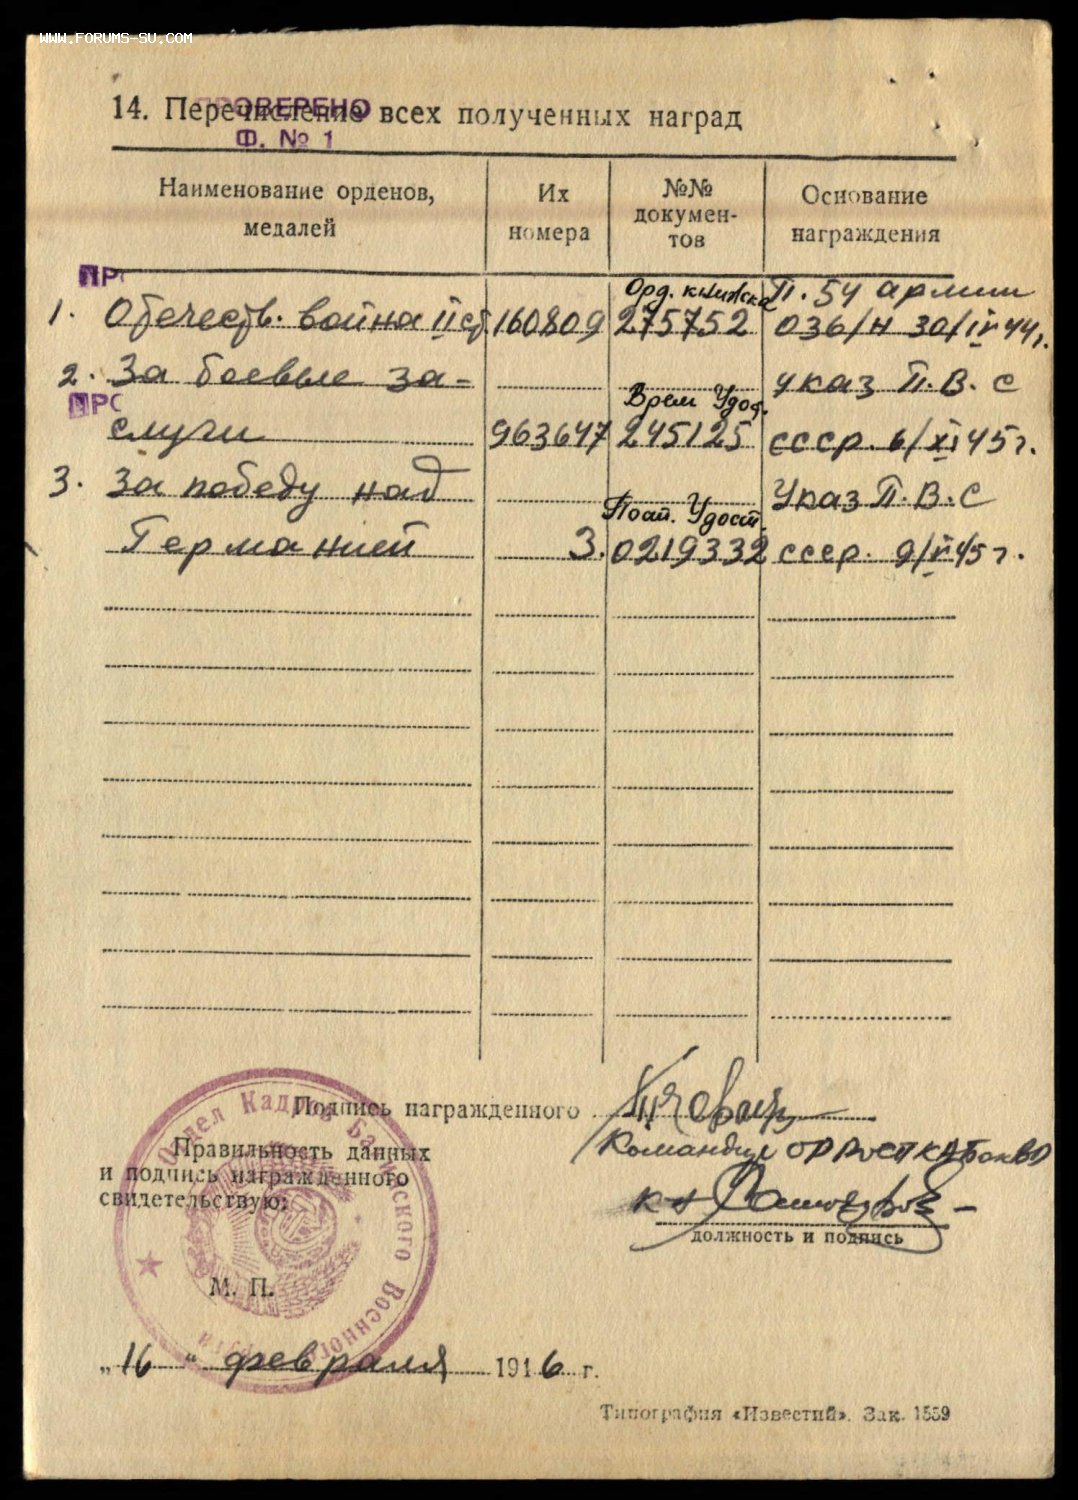 WWW.FORUMS-SU.COM
14. Перечисление всех полученных наград
ПРОВЕРЕНО
Ф. № 1
Наименование орденов, медалей
Их номера
№№ докумен-тов
Основание награждения
ПР
1. Отечеств. война II ст 160809 Орд. книжка 275752 П. 54 армии 036/н 30/IV 44 г.
2. За боевые за-
указ П.В.С
ПРО
слуги 963647 Врем Удос. 245125 СССР. 6/XI 45 г.
3. За победу над
Указ П.В.С
Германией З. Пост. Удост. 0219332 СССР. 9/V 45 г.
Подпись награжденного
Правильность данных
и подпись награжденного
свидетельствую:
Командир
должность и подпись
Отдел Кадров Бакинского Военного
М. П.
„16“ февраля 1946 г.
Типография «Известий». Зак. 1559